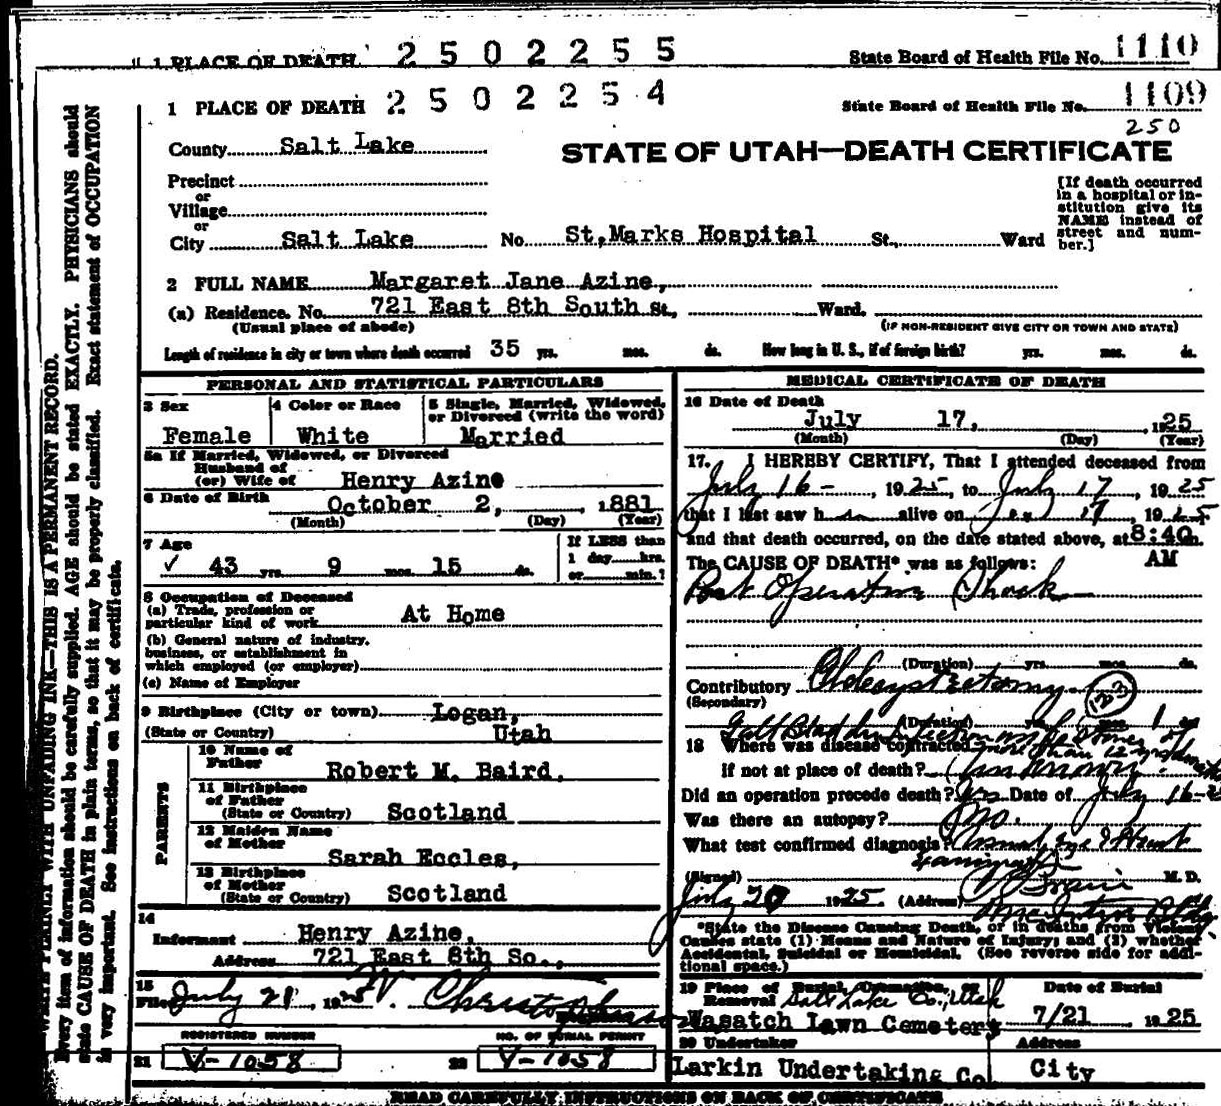 1 PLACE OF DEATH 2502255 State Board of Health File No. 1110
1 PLACE OF DEATH 2502254 State Board of Health File No. 1109
250
County Salt Lake
STATE OF UTAH—DEATH CERTIFICATE
Precinct
or
Village
or
City Salt Lake No. St,Marks Hospital St., Ward
[If death occurred
in a hospital or in-
stitution give its
NAME instead of
street and num-
ber.]
2 FULL NAME Margaret Jane Azine,
(a) Residence. No. 721 East 8th South St., Ward.
(Usual place of abode) (IF NON-RESIDENT GIVE CITY OR TOWN AND STATE)
Length of residence in city or town where death occurred 35 yrs. mos. ds. How long in U. S., if of foreign birth? yrs. mos. ds.
PERSONAL AND STATISTICAL PARTICULARS
3 Sex 4 Color or Race 5 Single, Married, Widowed,
or Divorced (write the word)
Female White Married
5a If Married, Widowed, or Divorced
Husband of
(or) Wife of Henry Azine
6 Date of Birth October 2, , 1881
(Month) (Day) (Year)
7 Age If LESS than
1 day hrs.
✓ 43 yrs. 9 mos. 15 ds. or min.?
8 Occupation of Deceased
(a) Trade, profession or
particular kind of work At Home
(b) General nature of industry,
business, or establishment in
which employed (or employer)
(c) Name of Employer
9 Birthplace (City or town) Logan,
(State or Country) Utah
PARENTS
10 Name of
Father Robert M. Baird,
11 Birthplace
of Father
(State or Country) Scotland
12 Maiden Name
of Mother Sarah Eccles,
13 Birthplace
of Mother
(State or Country) Scotland
14
Informant Henry Azine,
Address 721 East 8th So.,
15
Filed July 21, 1925
REGISTERED NUMBER NO. OF BURIAL PERMIT
21 V-1058 22 V-1058
MEDICAL CERTIFICATE OF DEATH
16 Date of Death
July 17, , 1925
(Month) (Day) (Year)
17. I HEREBY CERTIFY, That I attended deceased from
July 16-, 1925, to July 17, 1925
that I last saw h alive on 17, 1925
and that death occurred, on the date stated above, at 8:40 m.
AM
The CAUSE OF DEATH* was as follows:
Post Operative Shock
(Duration) yrs. mos. ds.
Contributory Cholecystectomy 123
(Secondary)
(Duration) yrs. mos. 1 ds.
Gall Bladder Infection
18 Where was disease contracted
if not at place of death? Unknown.
Did an operation precede death? Yes Date of July 16-25
Was there an autopsy? No.
What test confirmed diagnosis?
(Signed) M. D.
July 20 1925. (Address) McIntyre Bldg.
*State the Disease Causing Death, or in deaths from Violent
Causes state (1) Means and Nature of Injury; and (2) whether
Accidental, Suicidal or Homicidal. (See reverse side for addi-
tional space.)
19 Place of Burial, Cremation, or Date of Burial
Removal Salt Lake Co., Utah
Wasatch Lawn Cemetery 7/21 , 1925
20 Undertaker Address
Larkin Undertaking Co. City
READ CAREFULLY INSTRUCTIONS ON BACK OF CERTIFICATE
WRITE PLAINLY WITH UNFADING INK—THIS IS A PERMANENT RECORD.
Every item of information should be carefully supplied. AGE should be stated EXACTLY. PHYSICIANS should
state CAUSE OF DEATH in plain terms, so that it may be properly classified. Exact statement of OCCUPATION
is very important. See instructions on back of certificate.